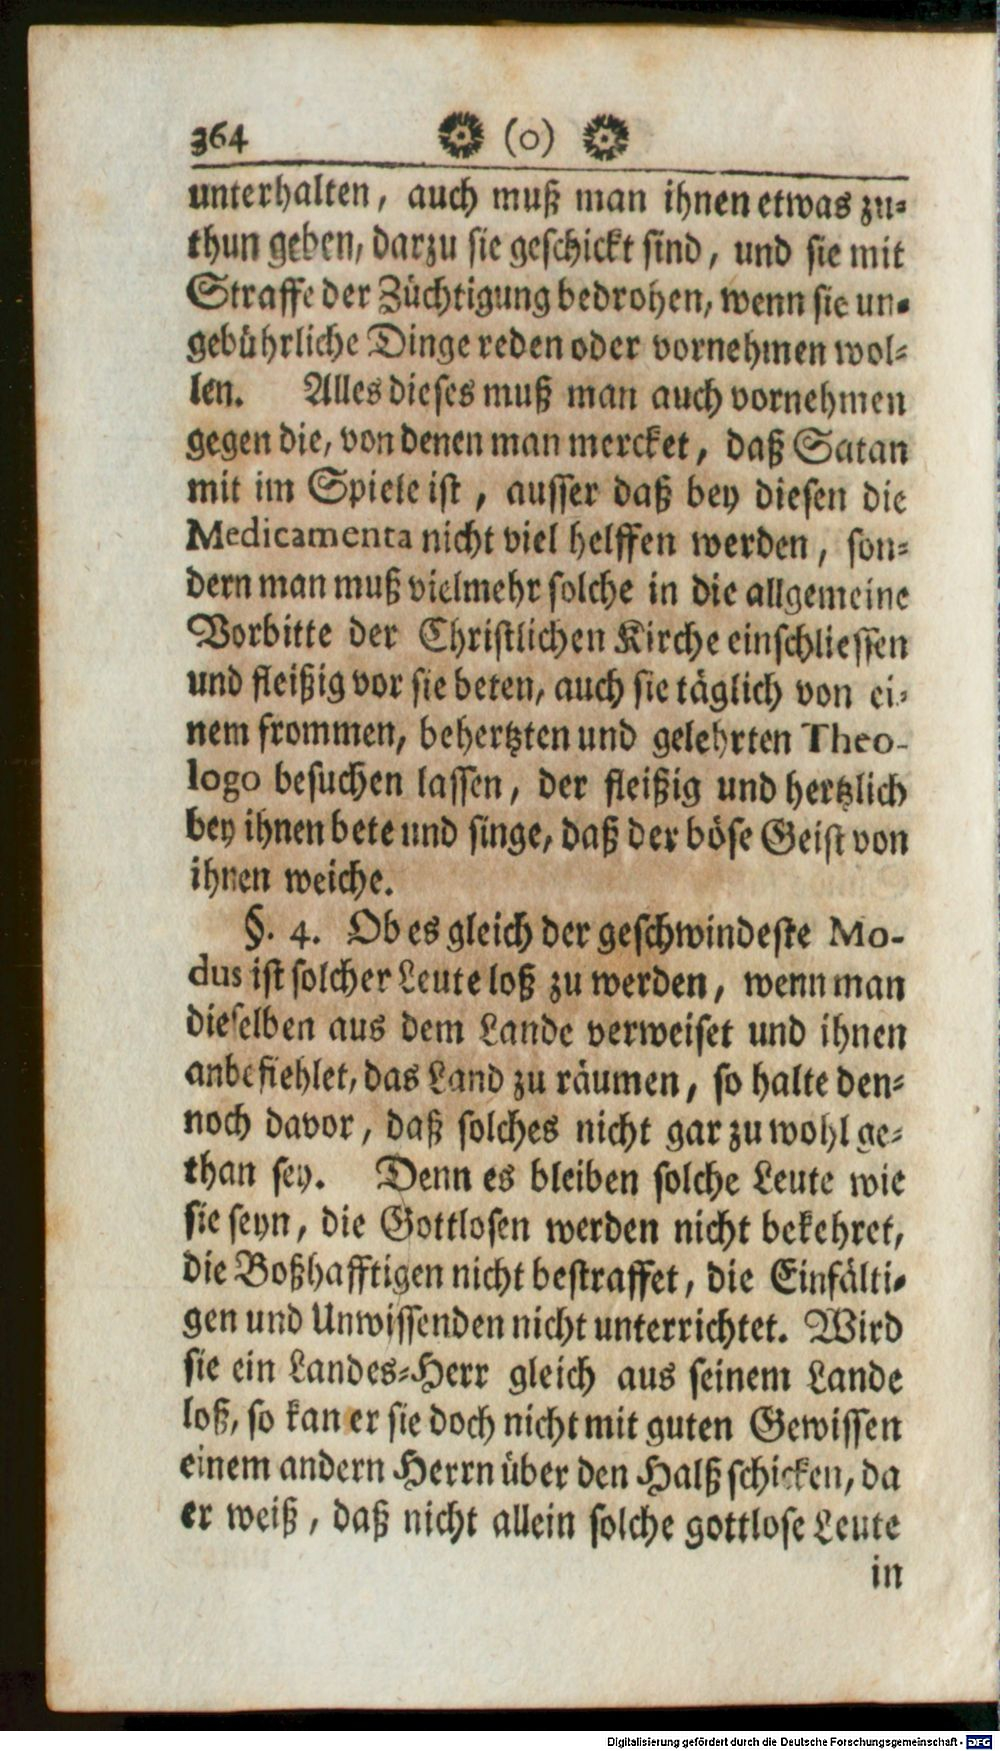 364 (o)
unterhalten, auch muß man ihnen etwas zu-
thun geben, darzu sie geschickt sind, und sie mit
Straffe der Züchtigung bedrohen, wenn sie un-
gebührliche Dinge reden oder vornehmen wol-
len. Alles dieses muß man auch vornehmen
gegen die, von denen man mercket, daß Satan
mit im Spiele ist, ausser daß bey diesen die
Medicamenta nicht viel helffen werden, son-
dern man muß vielmehr solche in die allgemeine
Vorbitte der Christlichen Kirche einschliessen
und fleißig vor sie beten, auch sie täglich von ei-
nem frommen, behertzten und gelehrten Theo-
logo besuchen lassen, der fleißig und hertzlich
bey ihnen bete und singe, daß der böse Geist von
ihnen weiche.
§. 4. Ob es gleich der geschwindeste Mo-
dus ist solcher Leute loß zu werden, wenn man
dieselben aus dem Lande verweiset und ihnen
anbefiehlet, das Land zu räumen, so halte den-
noch davor, daß solches nicht gar zu wohl ge-
than sey. Denn es bleiben solche Leute wie
sie seyn, die Gottlosen werden nicht bekehret,
die Boßhafftigen nicht bestraffet, die Einfälti-
gen und Unwissenden nicht unterrichtet. Wird
sie ein Landes-Herr gleich aus seinem Lande
loß, so kan er sie doch nicht mit guten Gewissen
einem andern Herrn über den Halß schicken, da
er weiß, daß nicht allein solche gottlose Leute
in
Digitalisierung gefördert durch die Deutsche Forschungsgemeinschaft - DFG